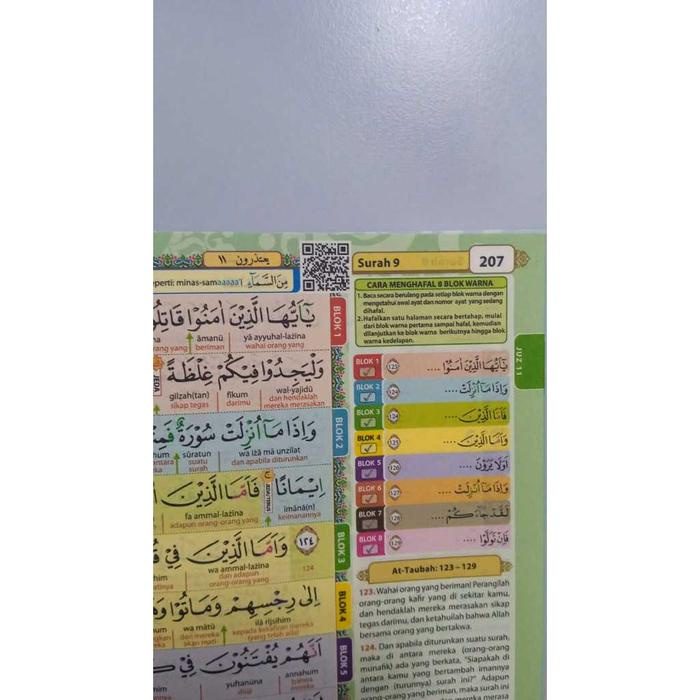 يعتذرون ١١
Surah 9
207
perti: minas-samaaaaa'i مِنَ السَّمَاۤءِ
CARA MENGHAFAL 8 BLOK WARNA
1. Baca secara berulang pada setiap blok warna dengan
mengetahui awal ayat dan nomor ayat yang sedang
dihafal.
2. Hafalkan satu halaman secara bertahap, mulai
dari blok warna pertama sampai hafal, kemudian
dilanjutkan ke blok warna berikutnya hingga blok
warna kedelapan.
JUZ 11
BLOK 1
يٰٓاَيُّهَا الَّذِيْنَ اٰمَنُوْا
yā ayyuhal-lażīna
āmanū
wahai orang yang
beriman
orang yang
وَلْيَجِدُوْا فِيْكُمْ غِلْظَةً
JEDA
wal-yajidū
fīkum
gilẓah(tan)
dan hendaklah
mereka merasakan
darimu
sikap tegas
BLOK 2
وَاِذَا مَآ اُنْزِلَتْ سُوْرَةٌ
wa iżā mā unzilat
sūratun
dan apabila diturunkan
suatu
surah
اِيْمَانًا ۚ فَاَمَّا الَّذِيْنَ
imānā(n)
fa ammal-lażīna
keimanannya
adapun orang-orang yang
BLOK 3
١٢٤ وَاَمَّا الَّذِيْنَ فِيْ
124
wa ammal-lażīna
dan adapun
orang-orang yang
BLOK 4
اِلٰى رِجْسِهِمْ وَمَاتُوْا
ilā rijsihim
wa mātū
kepada kekafiran mereka
(yang telah ada)
dan mereka
akan mati
BLOK 5
اَنَّهُمْ يُفْتَنُوْنَ فِيْ
annahum
yuftanūna
bahwa
mereka
diuji
BLOK 1 123 يٰٓاَيُّهَا الَّذِيْنَ اٰمَنُوْا ....
BLOK 2 124 وَاِذَا مَآ اُنْزِلَتْ ....
BLOK 3 124 فَاَمَّا الَّذِيْنَ ....
BLOK 4 125 وَاَمَّا الَّذِيْنَ ....
BLOK 5 126 اَوَلَا يَرَوْنَ ....
BLOK 6 127 وَاِذَا مَآ اُنْزِلَتْ ....
BLOK 7 128 لَقَدْ جَاۤءَكُمْ ....
BLOK 8 129 فَاِنْ تَوَلَّوْا ....
At-Taubah: 123 – 129
123. Wahai orang yang beriman! Perangilah
orang-orang kafir yang di sekitar kamu,
dan hendaklah mereka merasakan sikap
tegas darimu, dan ketahuilah bahwa Allah
bersama orang yang bertakwa.
124. Dan apabila diturunkan suatu surah,
maka di antara mereka (orang-orang
munafik) ada yang berkata, "Siapakah di
antara kamu yang bertambah imannya
dengan (turunnya) surah ini?" Adapun
orang-orang yang beriman, maka surah ini